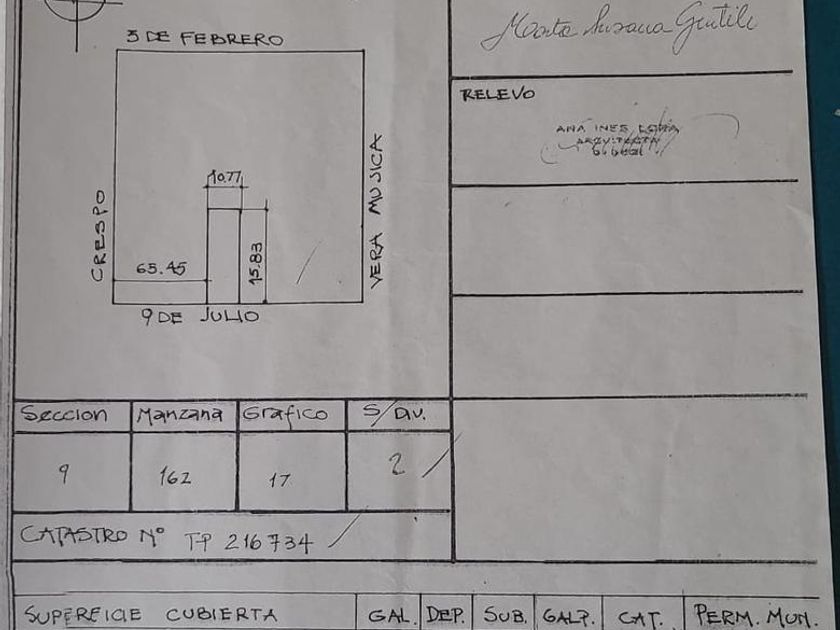 3 DE FEBRERO
CRESPO
VERA MUJICA
10.77
15.83
65.45
9 DE JULIO
RELEVO
ANA INES
ARQUITECTA
Seccion Manzana Grafico S/DIV.
9 162 17 2
CATASTRO Nº TP 216734
SUPERFICIE CUBIERTA GAL. DEP. SUB. GALP. CAT. PERM. MUN.